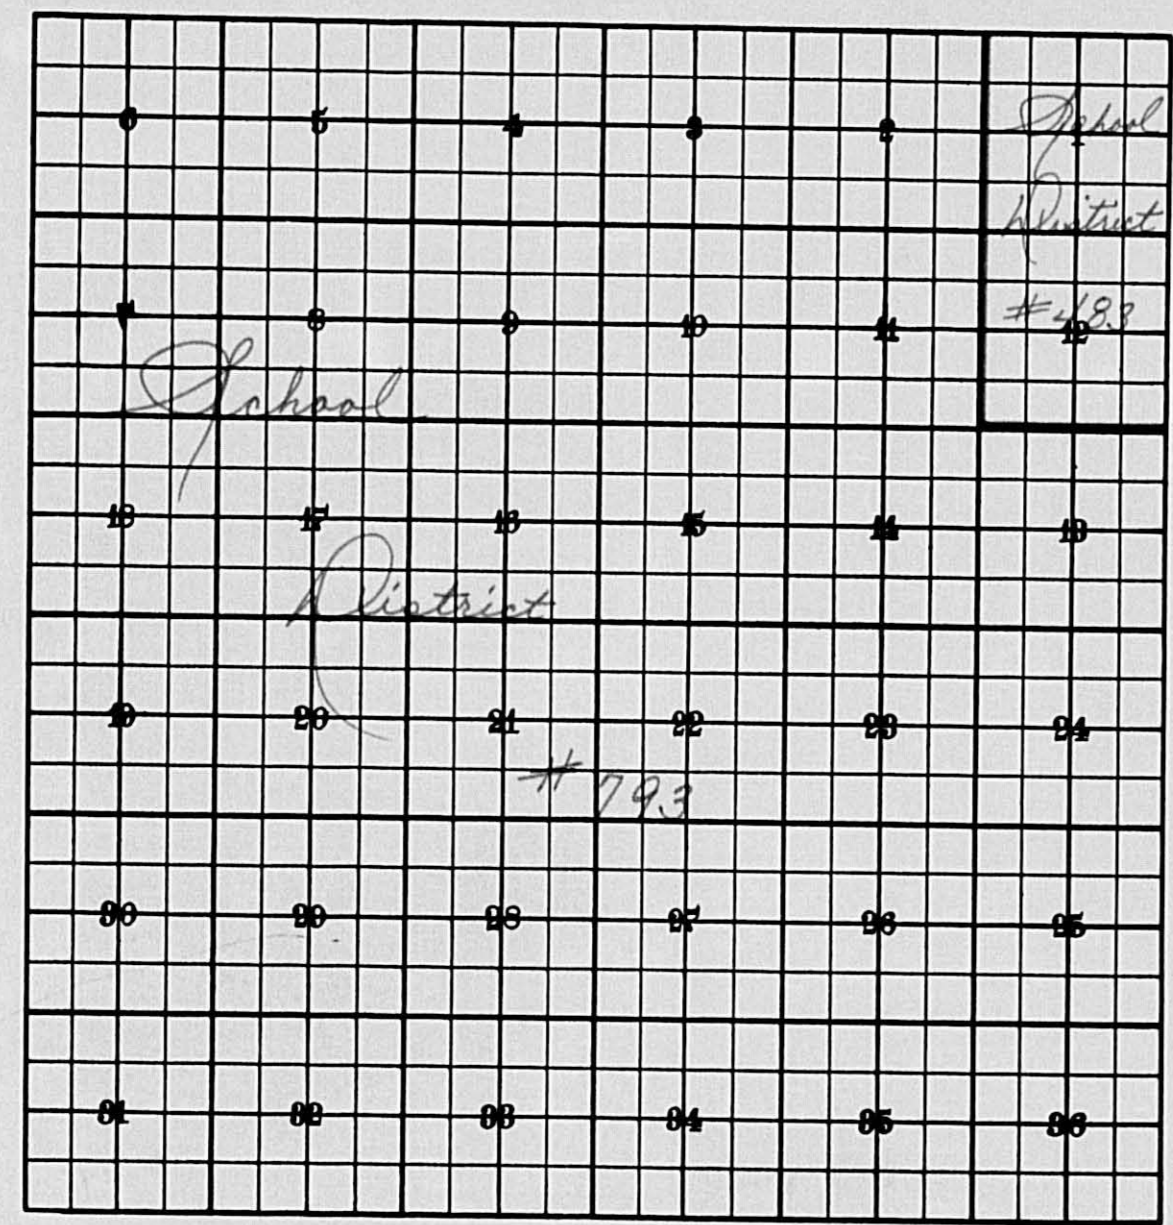 6 5 4 3 2
School
District
7 8 9 10 11 12
#483
School
18 17 16 15 14 13
District
19 20 21 22 23 24
# 793
30 29 28 27 26 25
31 32 33 34 35 36